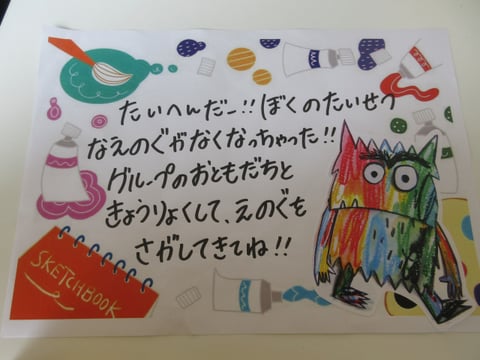 たいへんだー!!ぼくのたいせつ
なえのぐがなくなっちゃった!!
グループのおともだちと
きょうりょくして、えのぐを
さがしてきてね!!
SKETCHBOOK